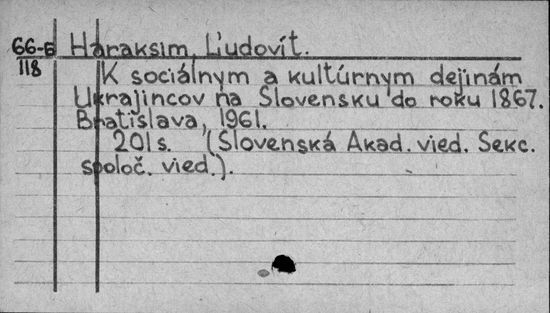 66-6 Haraksim, Ľudovít.
118
K sociálnym a kultúrnym dejinám
Ukrajincov na Slovensku do roku 1867.
Bratislava, 1961.
201 s. (Slovenská Akad. vied. Sekc.
spoloč. vied.).